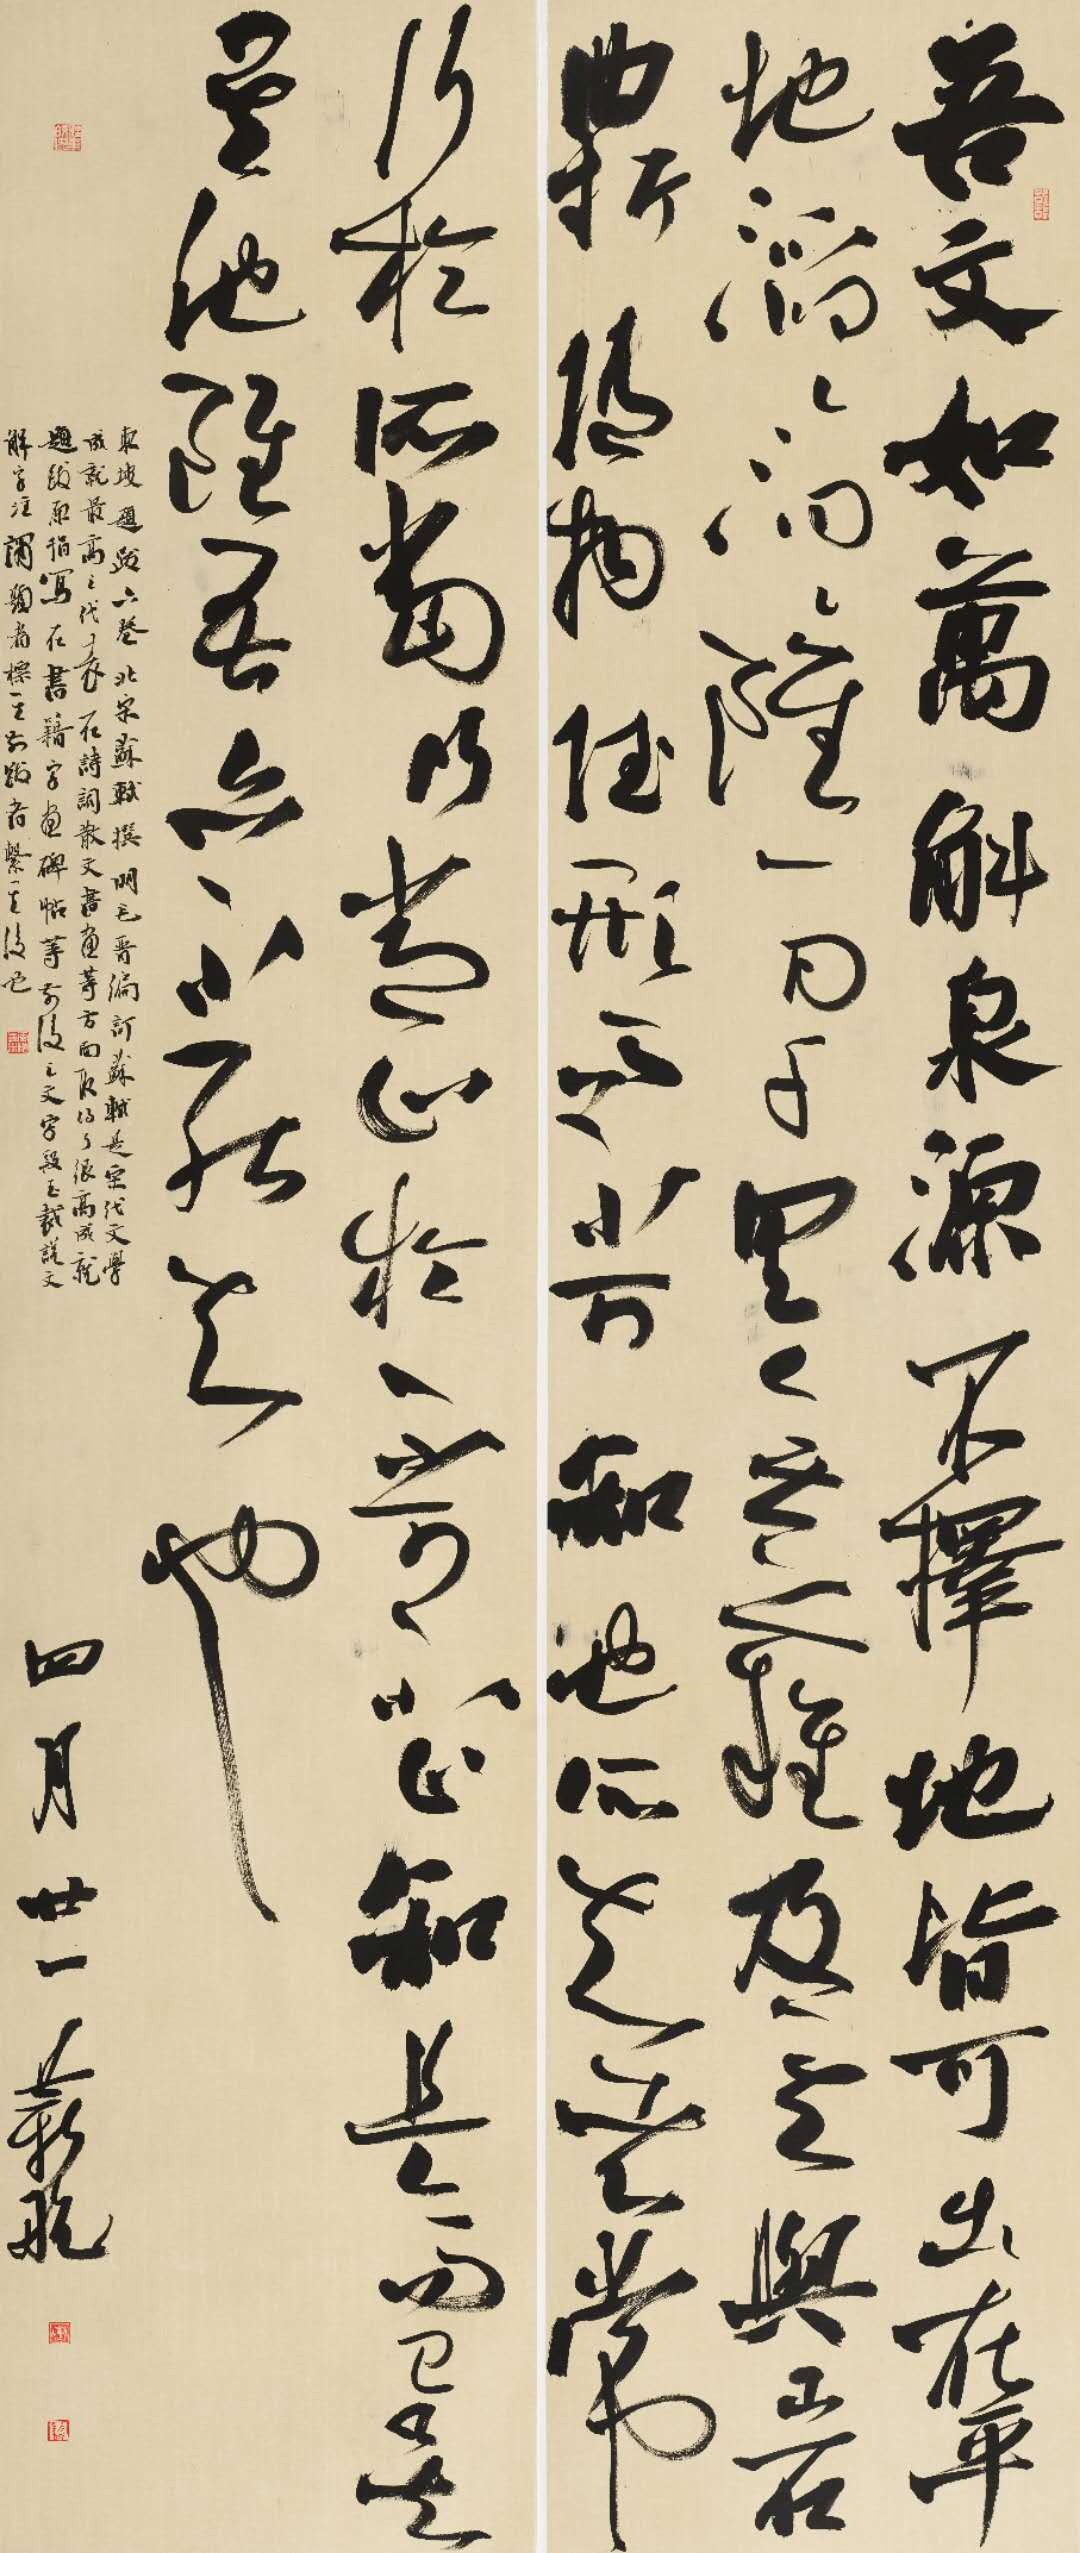 吾文如萬斛泉源不擇地皆可出在平
地滔〻汩〻雖一日千里無難及其與山石
曲折隨物賦形而不可知也所知者常
行於所當行常止於不可不止如是而已矣
其他雖吾亦不能知也
東坡題跋六卷北宋蘇軾撰明毛晉編訂蘇軾是宋代文學
成就最高之代表在詩詞散文書畫等方面取得了很高成就
題跋原指寫在書籍字畫碑帖等前後之文字段玉裁說文
解字注謂題者標其前跋者繫其後也
四月廿一